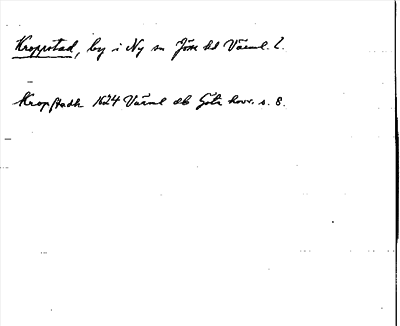 Kroppstad, by i Ny sn Jöse hd Värml. l.
Kropstadh 1624 Värml db Göta hovr. s. 8.